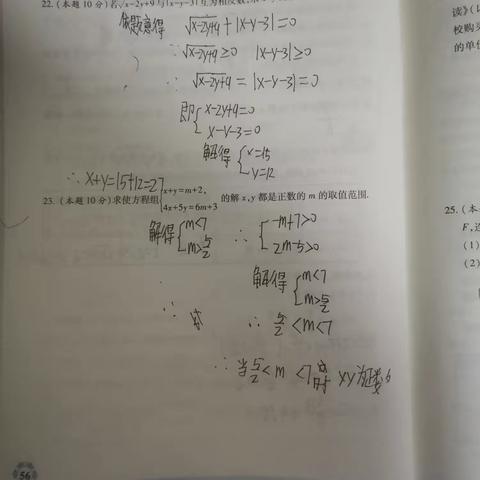 22. (本题 10 分) 若√x-2y+9与|x-y-3|互为相反数,
依题意得 √x-2y+9 + |x-y-3| = 0
∵ √x-2y+9 ≥ 0 |x-y-3| ≥ 0
∴ √x-2y+9 = |x-y-3| = 0
即 { x-2y+9=0
x-y-3=0
解得 { x=15
y=12
∴ x+y=15+12=27
23. (本题 10 分) 求使方程组 { x+y=m+2, 4x+5y=6m+3 的解 x, y 都是正数的 m 的取值范围.
解得 { m<7 ∴ { -m+7>0
m>5/2 2m-5>0
解得 { m<7
m>5/2
∴ 5/2 < m < 7
∴ 当 5/2 < m < 7 时 xy 为正数
56
读》(
校购
的单
25. (
F,
(1)
(2)